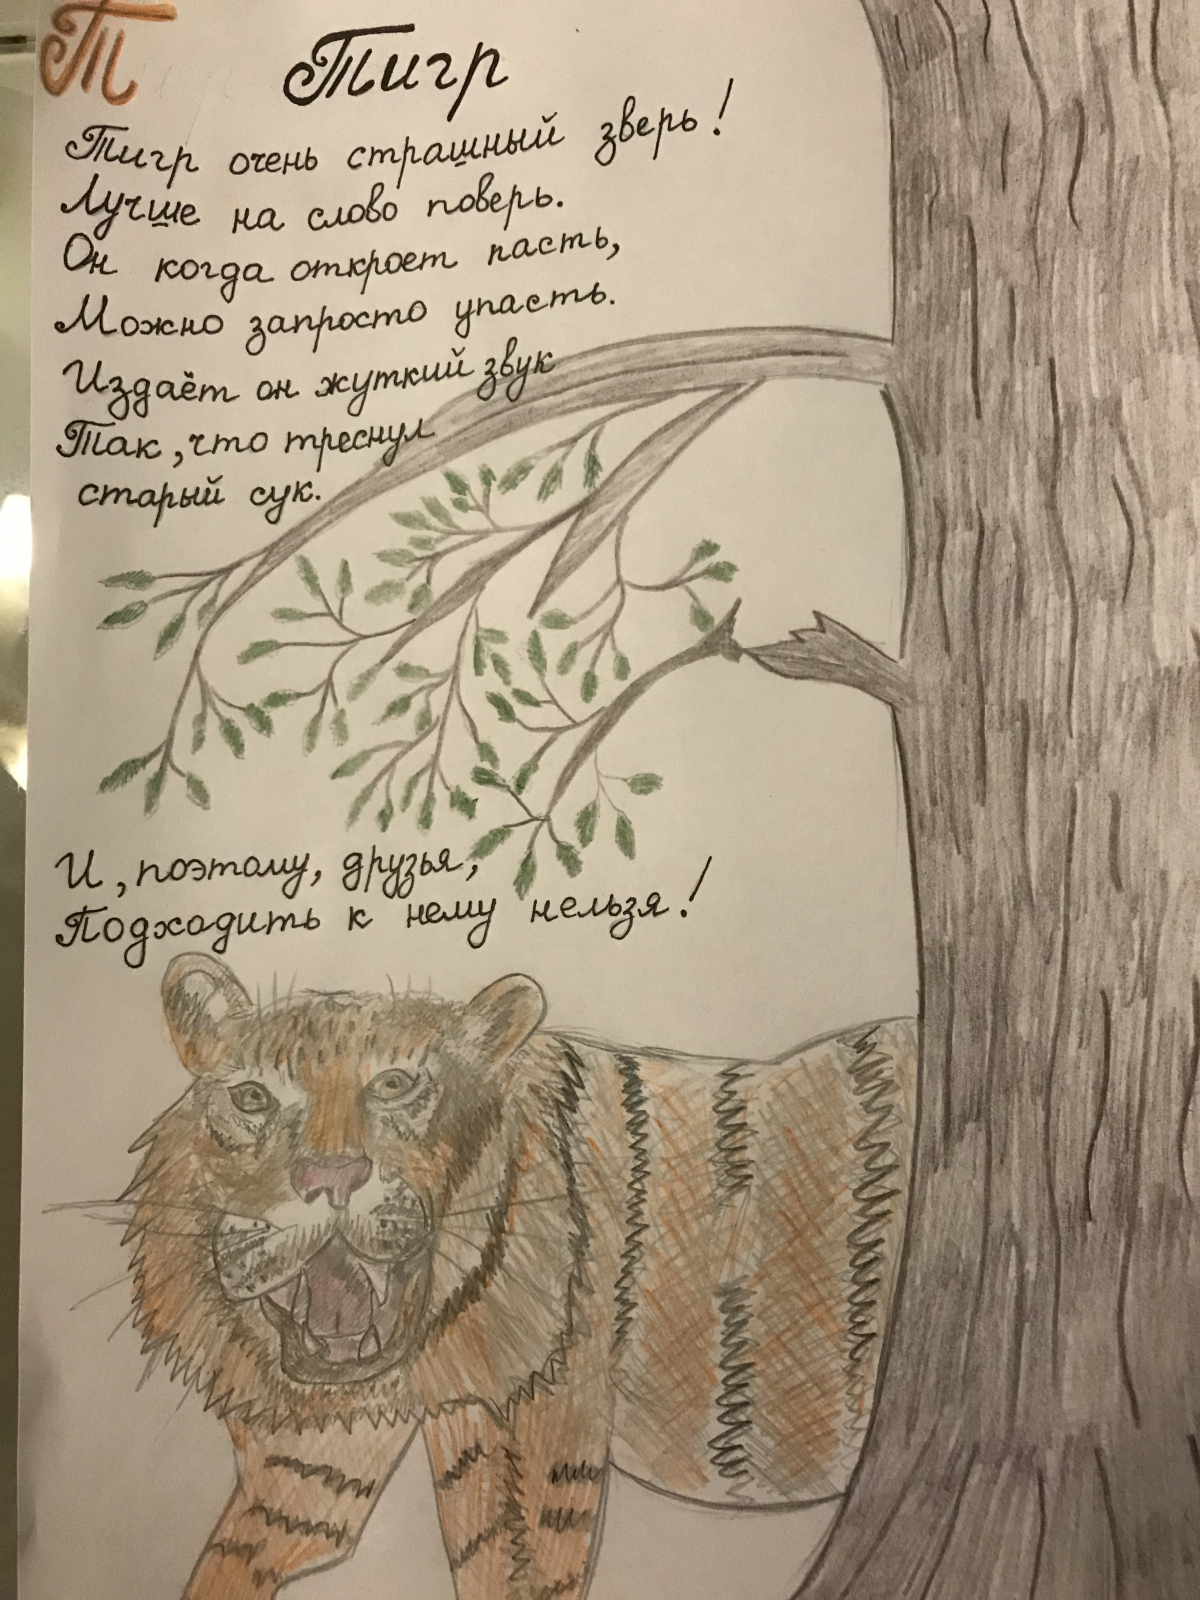 Т Тигр
Тигр очень страшный зверь!
Лучше на слово поверь.
Он когда откроет пасть,
Можно запросто упасть.
Издаёт он жуткий звук
Так, что треснул
старый сук.
И, поэтому, друзья,
Подходить к нему нельзя!